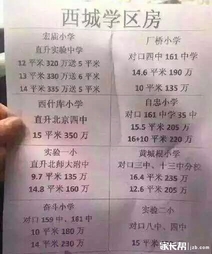 西城学区房
宏庙小学
直升实验中学
12 平米 320 万送 5 平米
13 平米 335 万送 6 平米
14 平米 335 万
厂桥小学
对口四中 161 中学
14.6 平米 190 万
10 平米 135 万
西什库小学
直升北京四中
15 平米 350 万
自忠小学
对口 161 中学 35 中
15.5 平米 205 万
16+10 平米 220 万
实验一小
直升北师大附中
9.7 平米 135 万
14.8 平米 160 万
黄城根小学
对口三中、十三中分校
16.4 平米 225 万
12.6 平米 205 万
奋斗小学
对口 159 中，161 中
10 平米 180 万
14 平米 230 万
实验二小
对口八中，四中
15 平米
家长帮
jzb.com